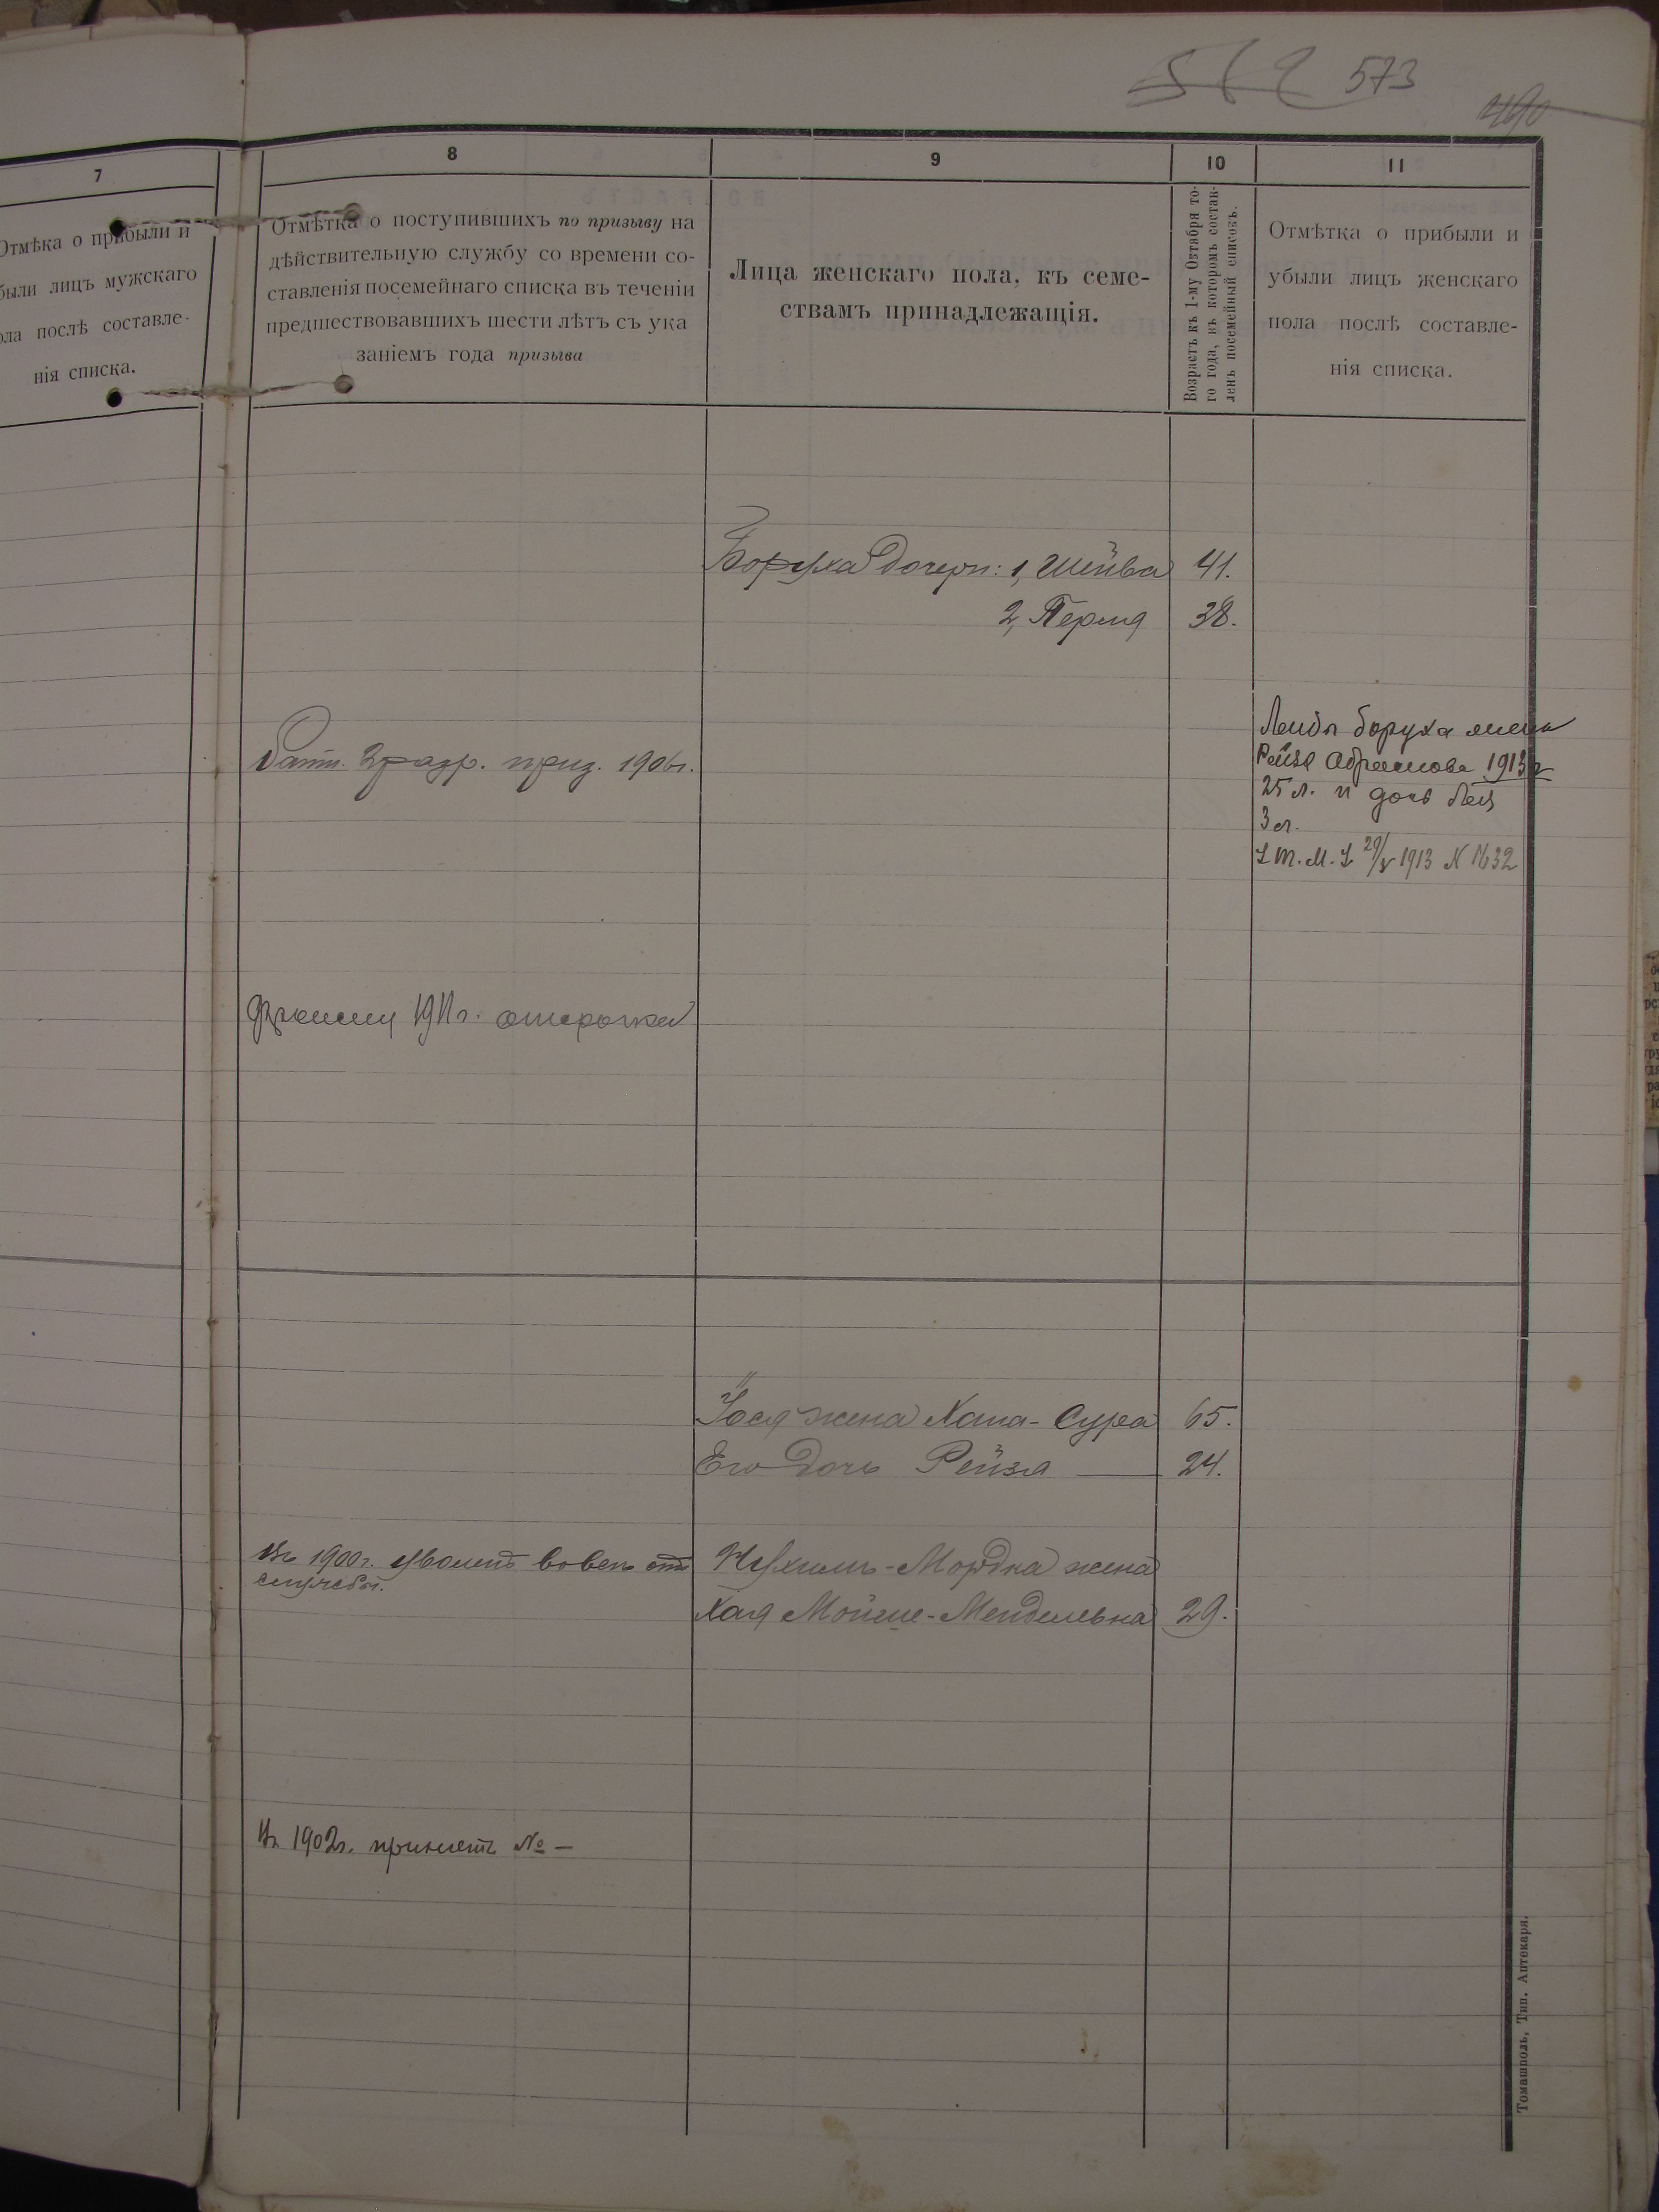 573
490
7
8
9
10
11
Отмѣка о прибыли и
были лицъ мужскаго
ола послѣ составле-
нія списка.
Отмѣтка о поступившихъ по призыву на
дѣйствительную службу со времени со-
ставленія посемейнаго списка въ теченіи
предшествовавшихъ шести лѣтъ съ ука
заніемъ года призыва
Лица женскаго пола, къ семе-
ствамъ принадлежащія.
Возрастъ къ 1-му Октября то-
го года, въ которомъ состав-
ленъ посемейный списокъ.
Отмѣтка о прибыли и
убыли лицъ женскаго
пола послѣ составле-
нія списка.
Боруха дочери: 1, Шейва 41.
2, Перля 38.
Боруха жена
Рейзя Абрамова 1913 г
25 л. и дочь
3 л.
1913 N 1632
2 разр. приз. 1906 г.
1911 г. отсрочка
Іося жена Хана-Сура 65.
Его дочь Рейзя 24.
Въ 1900 г. уволенъ вовсе отъ
службы.
Нухимъ-Мордка жена
Хая Мойше-Мендельевна 29.
Въ 1902 г. принятъ № —
Томашполь, Тип. Аптекаря.